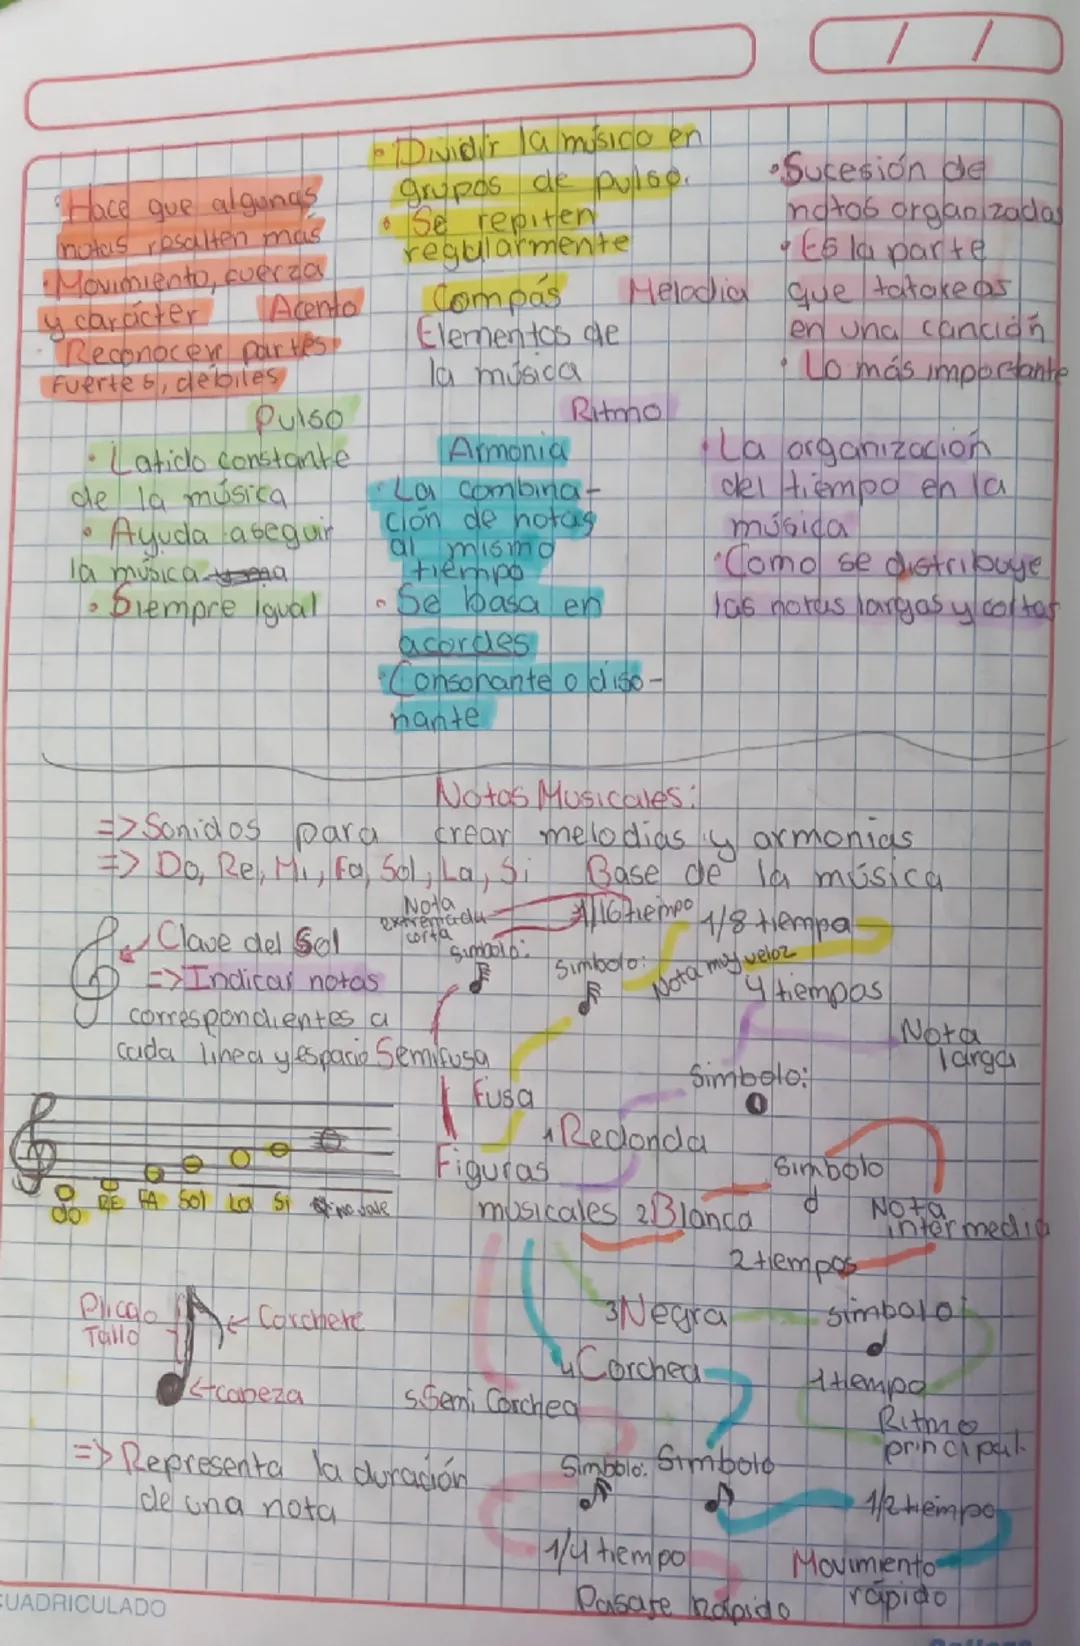 / /
• Hace que algunas
notas resalten más
• Movimiento, fuerza
y carácter
• Reconocer partes
fuertes, débiles
Acento
• Dividir la músico en
grupos de pulso.
• Se repiten
regularmente
Compás
Elementos de
la música
Melodia
• Sucesión de
notas organizadas
• Es la parte
que tatareas
en una canción
• Lo más importante
Pulso
• Latido constante
de la música
• Ayuda a seguir
la música
• Siempre igual
Armonia
• La combina-
ción de notas
al mismo
tiempo
• Se basa en
acordes
• Consonante o diso-
nante
Ritmo
• La organización
del tiempo en la
música
• Como se distribuye
las notas largas y cortas
Notas Musicales:
=> Sonidos para crear melodias y armonias
=> Do, Re, Mi, Fa, Sol, La, Si Base de la música
Clave del Sol
=> Indicar notas
correspondientes a
cada linea y espacio
Nota
extremada
corta
1/16 tiempo
Simbolo:
Semifusa
1/8 tiempo
Nota muy veloz
Simbolo:
Fusa
4 tiempos
Nota
larga
Simbolo:
1 Redonda
Figuras
musicales
2 Blanca
Simbolo
Nota
intermedia
2 tiempos
do RE FA Sol La Si no vale
3 Negra
simbolo
1 tiempo
Ritmo
principal.
Plica o
Tallo
Corchete
cabeza
=> Representa la duración
de una nota
4 Corchea
Simbolo
1/2 tiempo
Movimiento
rápido
5 Semi Corchea
Simbolo:
1/4 tiempo
Pasaje Rápido
CUADRICULADO